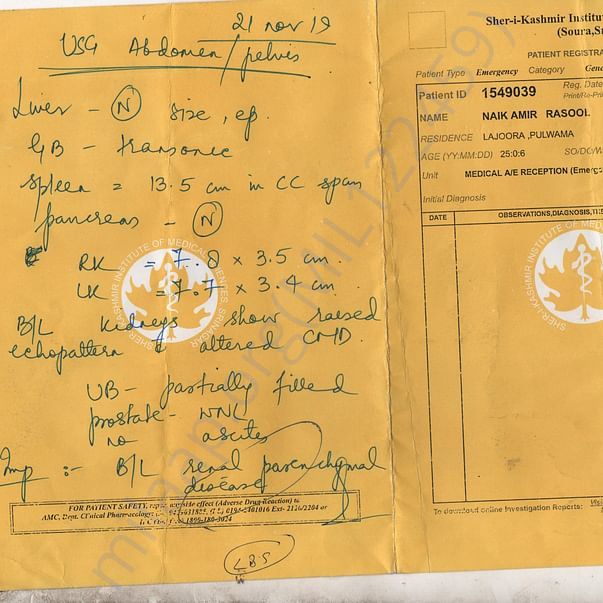 21 nov 19
USG Abdomen/pelvis
Liver - N size, ep.
GB - transonic
Spleen = 13.5 cm in CC span
pancreas - N
RK = 7.8 x 3.5 cm.
LK = 7.7 x 3.4 cm.
B/L kidneys show raised
echopattern c altered CMD.
UB - partially filled
prostate - WNL
no ascites
Imp :- B/L renal parenchymal
disease
FOR PATIENT SAFETY, report side effect (Adverse Drug Reaction) to
AMC, Dept. Clinical Pharmacology
Sher-i-Kashmir Institu
(Soura,S
PATIENT REGISTRA
Patient Type Emergency Category Gene
Reg. Date
Patient ID 1549039 Print/Re-Prin
NAME NAIK AMIR RASOOL
RESIDENCE LAJOORA ,PULWAMA
AGE (YY:MM:DD) 25:0:6 SO/DO/W
Unit MEDICAL A/E RECEPTION (Emerge
Initial Diagnosis
DATE OBSERVATIONS,DIAGNOSIS,T
SHER-I-KASHMIR INSTITUTE OF MEDICAL SCIENCES SRINAGAR
SHER-I-KASHMIR INSTITUTE OF ME
To download online Investigation Reports: